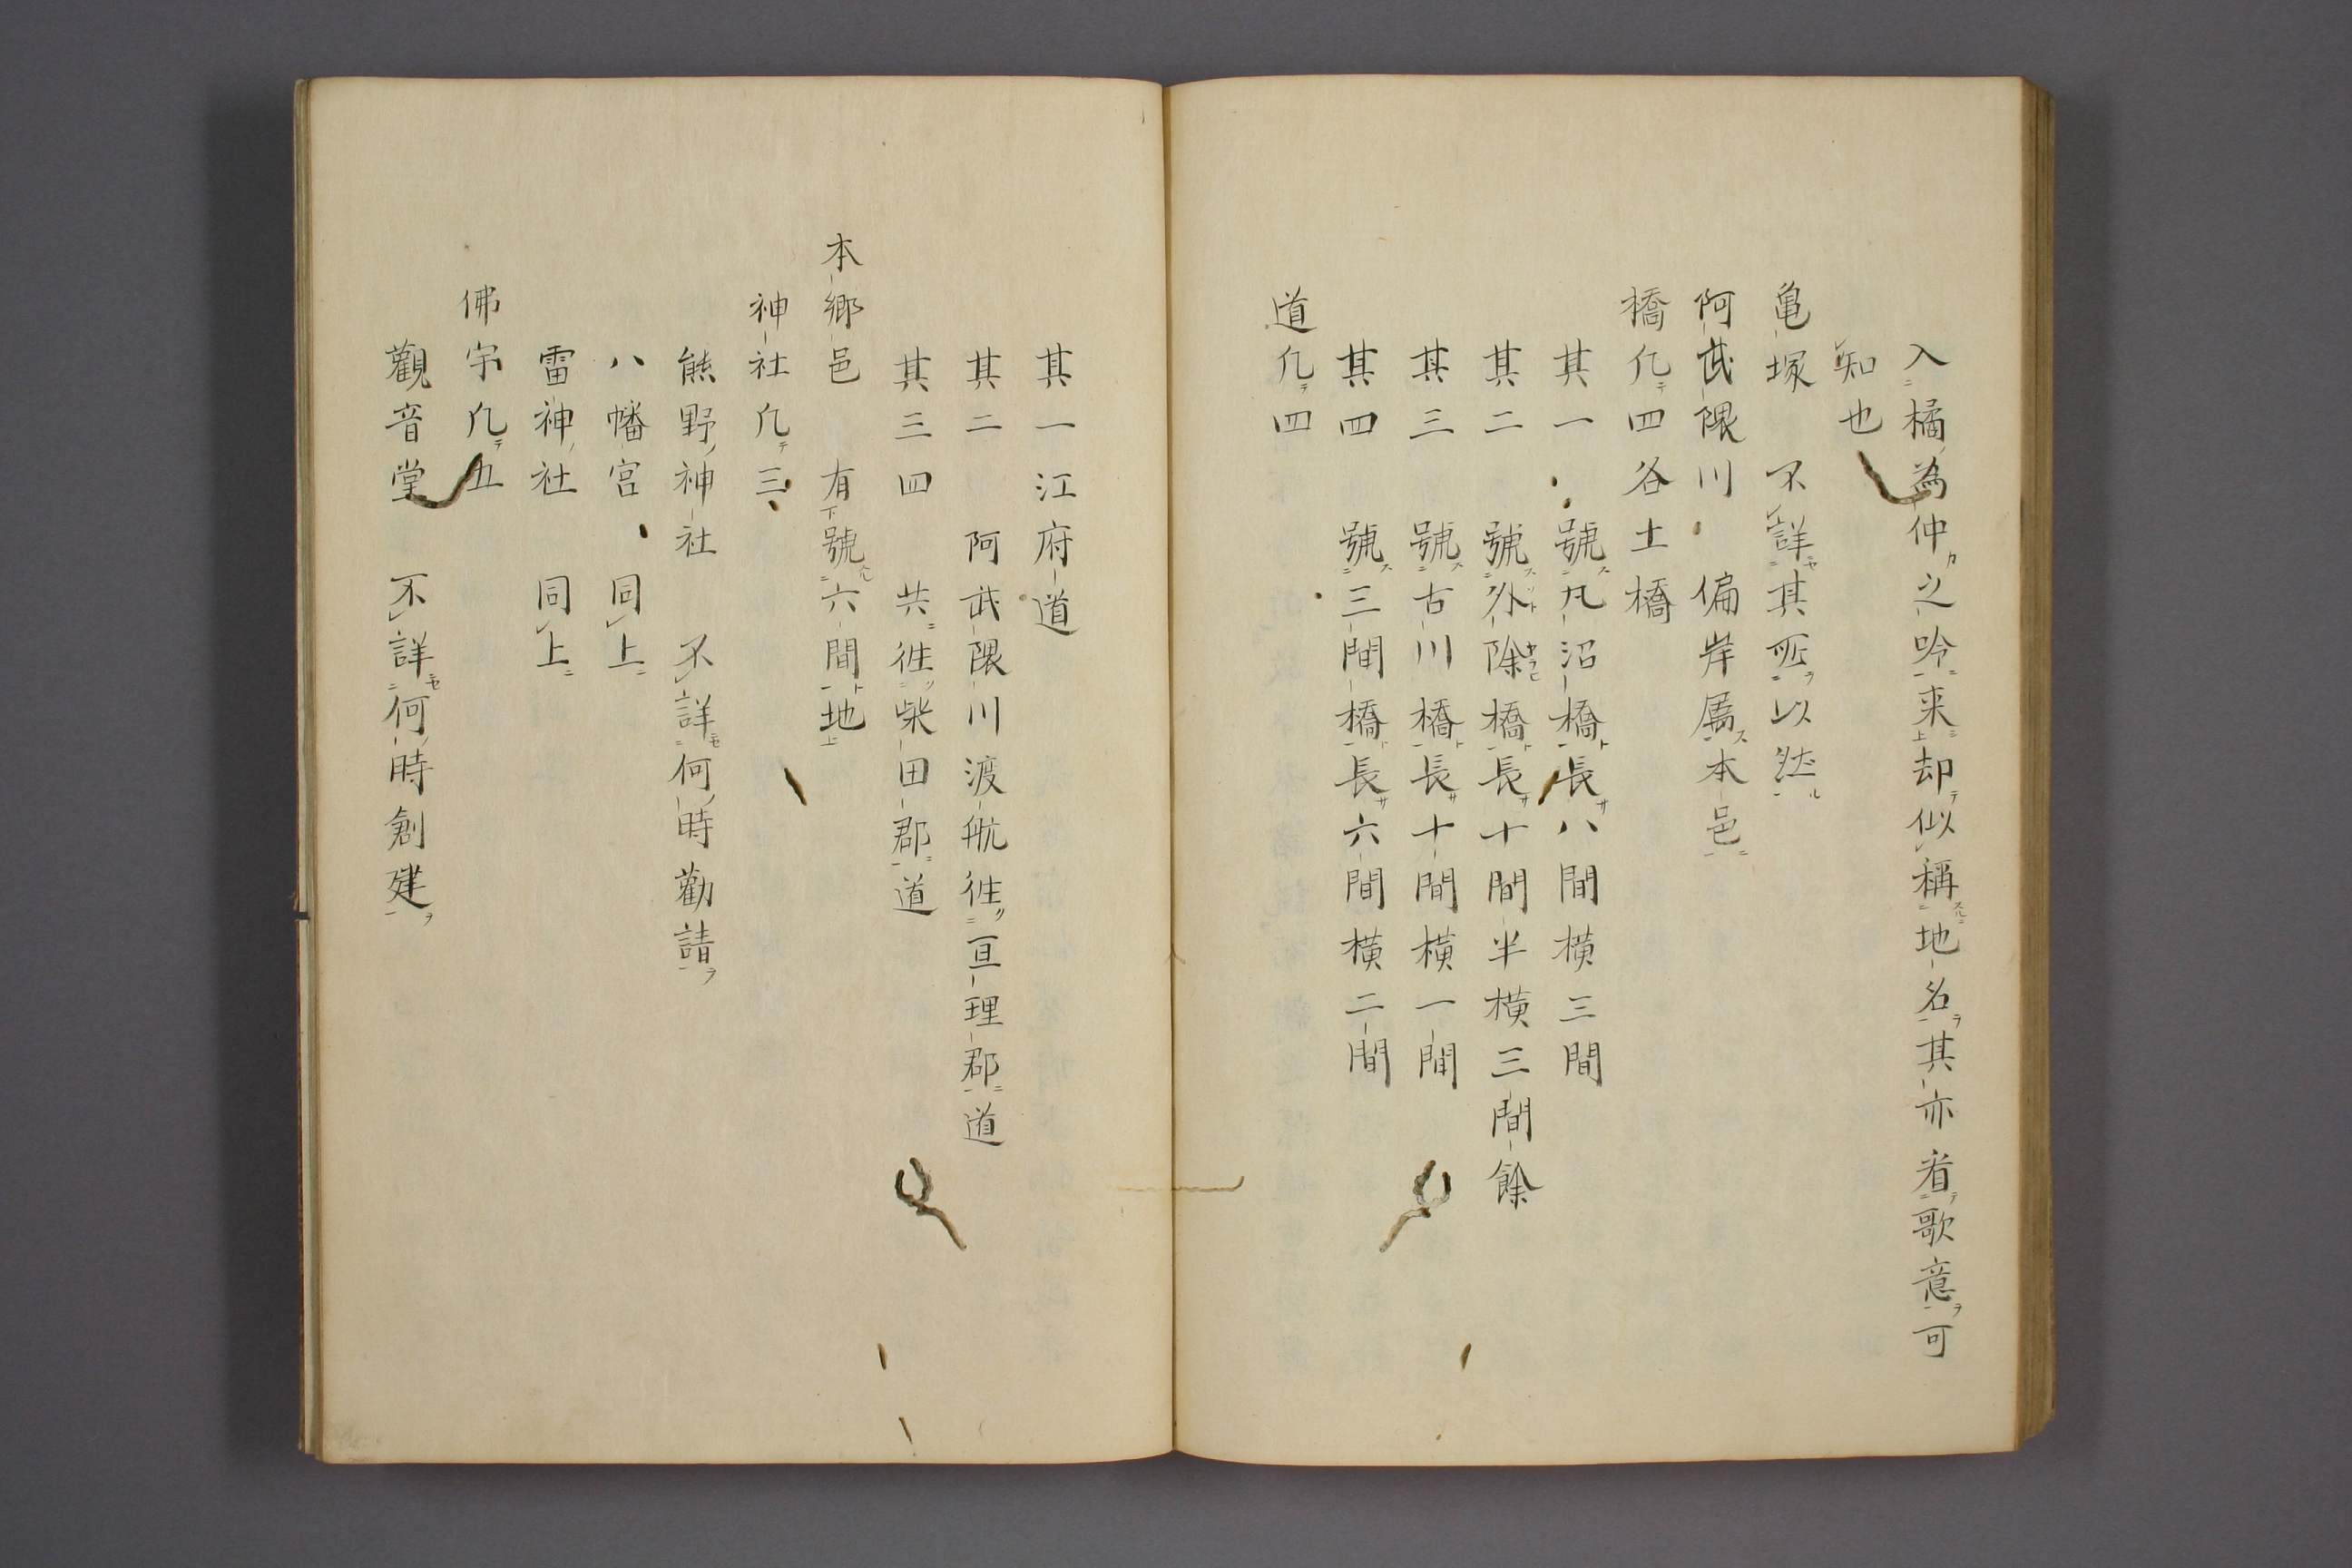 入橘為仲之吟来却似稱地名其亦看歌意可
知也
亀塚　不詳其所以然
阿武隈川　偏岸属本邑
橋凢四谷土橋
其一　號凡沼橋長八間横三間
其二　號外除橋長十間半横三間餘
其三　號古川橋長十間横一間
其四　號三間橋長六間横二間
道凢四
其一江府道
其二　阿武隈川渡航徃亘理郡道
其三四　共徃柴田郡道
本郷邑　有號六間地
神社凢三
熊野神社　不詳何時勸請
八幡宮　同上
雷神社　同上
佛宇凢五
觀音堂　不詳何時創建